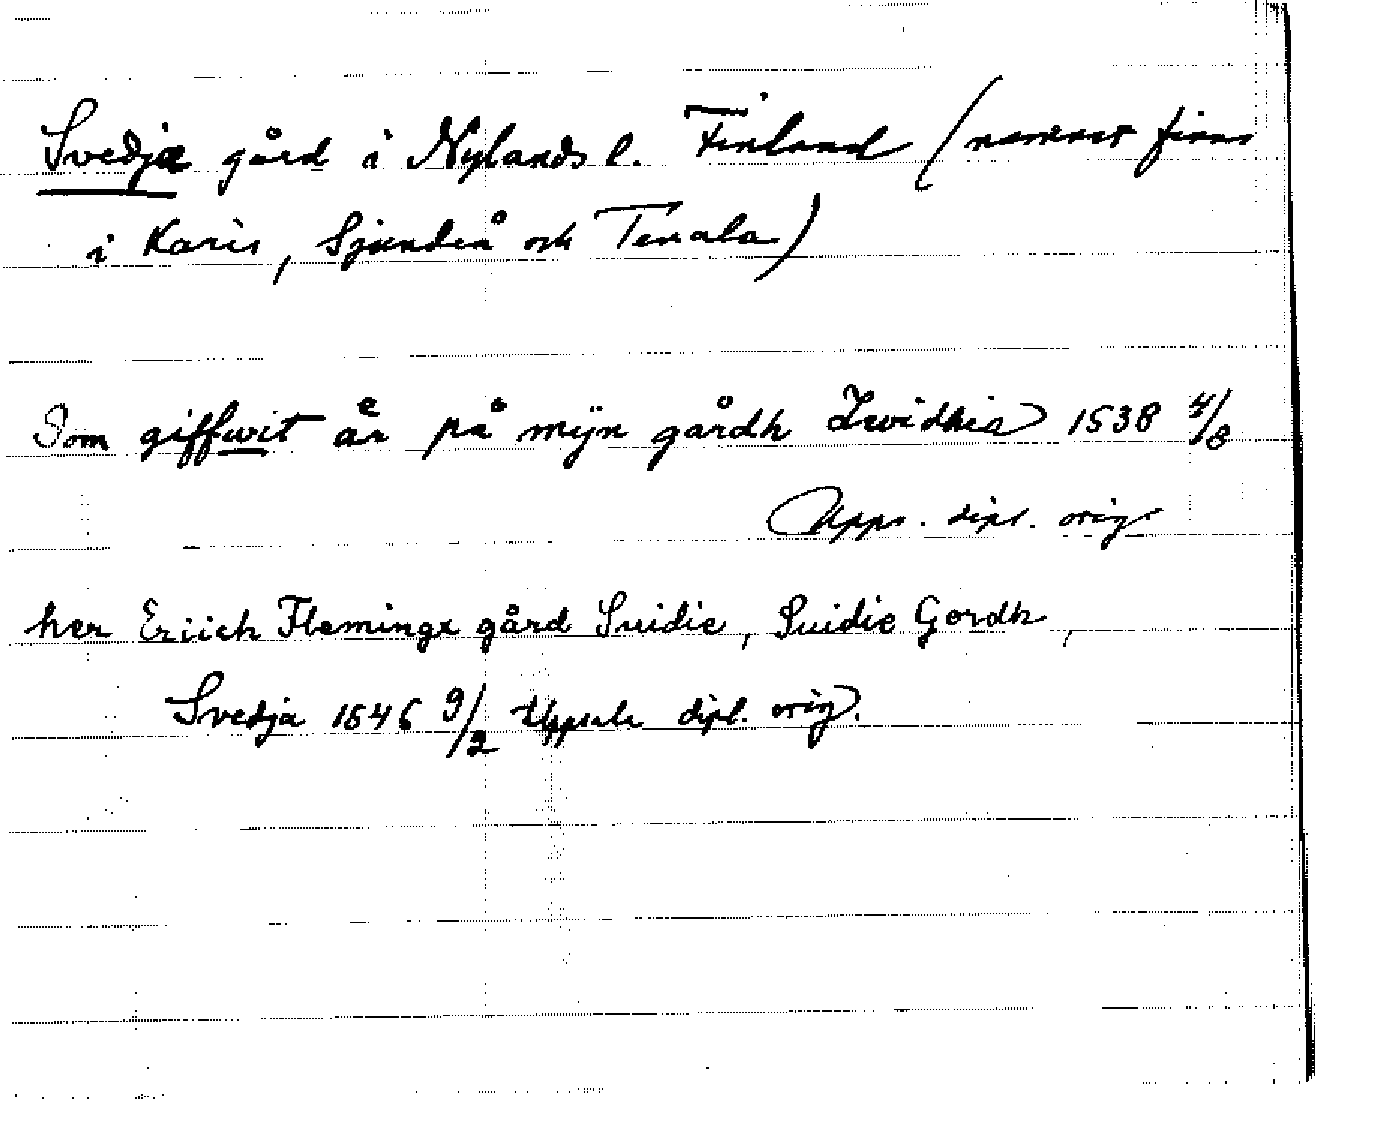 Svedja gård i Nylands l. Finland (namnet finns
i Karis, Sjundeå och Tenala)
Som giffwit aͤr på mÿn gårdh Zwidhia 1538 4/8
Upps. dipl. orig
her Eriich Fleminge gård Suidie, Suidie Gordh,
Svedja 1546 9/2 Uppsala dipl. orig.